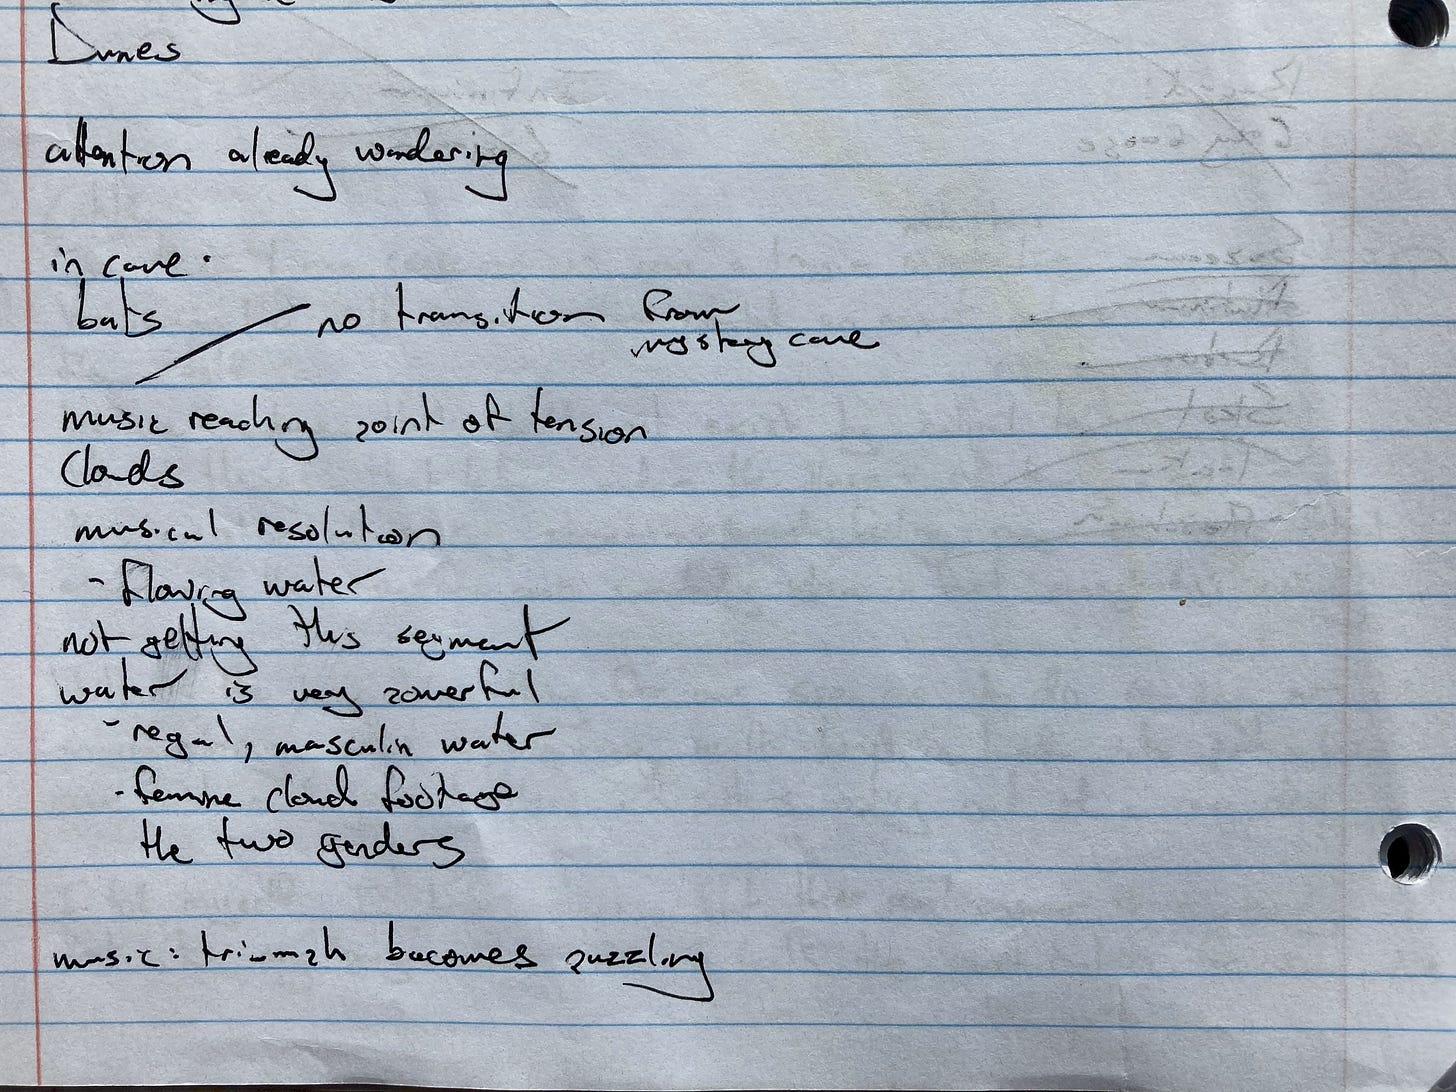 Dunes
attention already wandering
in cave.
bats
no transition from
mystery cave
music reaching point of tension
Clouds
musical resolution
- flowing water
not getting this segment
water is very powerful
- regal, masculin water
- femine cloud footage
the two genders
music: triumph becomes puzzling